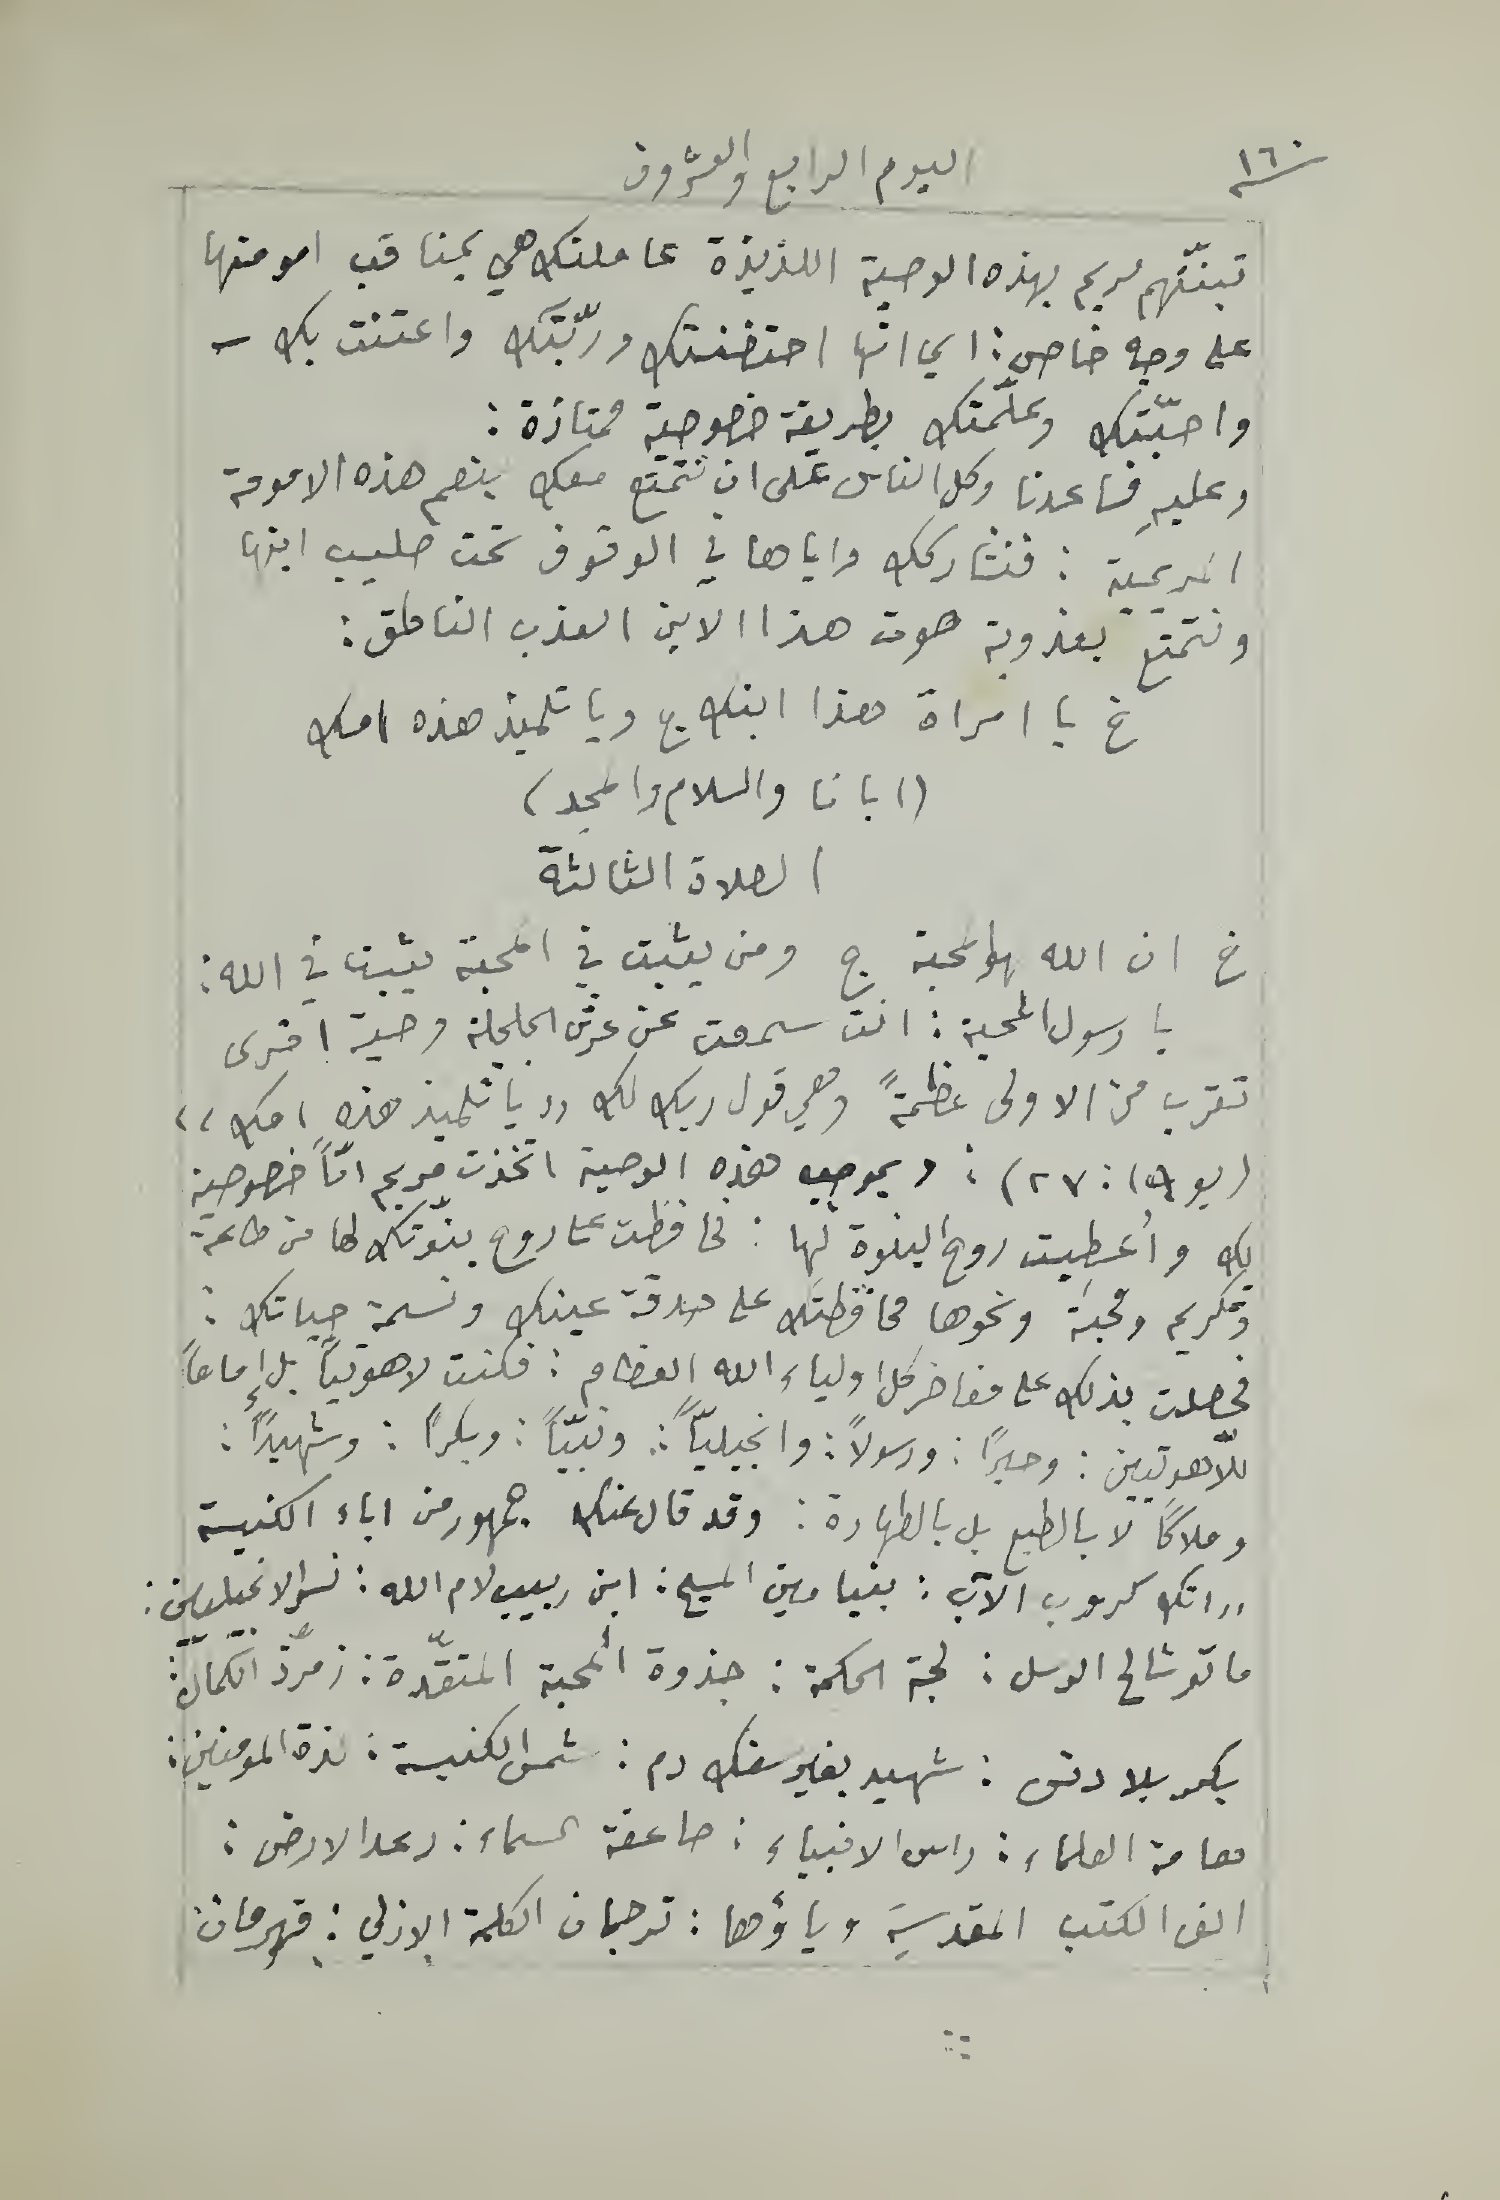 ١٦٠
اليوم الرابع والعشرون
تبنتهم مريم بهذه الوصية اللذيذة عاملتك هي بمناقب امومتها
على وجه خاص: اي انها احتضنتك وربّتك واعتنت بك –
واحبّتك وعلّمتك بطريقة خصوصية ممتازة:
وعليهِ فساعدنا وكل الناس على ان نتمتع معك بنعم هذه الامومة
المريمية: فنشاركك واياها في الوقوف تحت صليب ابنها
ونتمتع بعذوبة صوت هذا الابن العذب الناطق:
خ يا امراة هذا ابنك ج ويا تلميذ هذه امك
(ابانا والسلام والمجد)
الصلاة الثالثة
خ ان الله هو المحبة ج ومن يثبت في المحبة يثبت في الله:
يا رسول المحبة: انت سمعت من عرش الجلجلة وصية اخرى
تقرب من الاولى عظمةً وهي قول ربك لك ,, يا تلميذ هذه امك ,,
(يو ١٩: ٢٧): وبموجب هذه الوصية اتخذت مريم امّاً خصوصية
لك وأُعطيت روح البنوة لها: فحافظت على روح بنوّتك لها من طاعة
وتكريم ومحبة ونحوها محافظتك على حدقة عينك ونسمة حياتك:
فحصلت بذلك على مفاخر كل اولياء الله العظام: فكنت لاهوتياً بل إماماً
للّاهوتيين: وحبرًا: ورسولاً: وانجيليّاً: ونبيّاً: وبكرًا: وشهيدًا:
وملاكًا لا بالطبع بل بالطهارة: وقد قال عنك جمهور من اباء الكنيسة
,, انك كروب الآب: بنيامين المسيح: ابن ربيب لام الله: نسر الانجيليين:
ماتوشالح الرسل: لجة الحكمة: جذوة المحبة المتقدة: زمرّذ الكمال:
بكر بلا دنس: شهيد بغير سفك دم: شمس الكنيسة: لذة المومنين:
هامة العلماء: راس الانبياء: صاعقة السماء: رعد الارض:
الف الكتب المقدسة وياؤها: ترجمان الكلمة الازلي: قهرمان